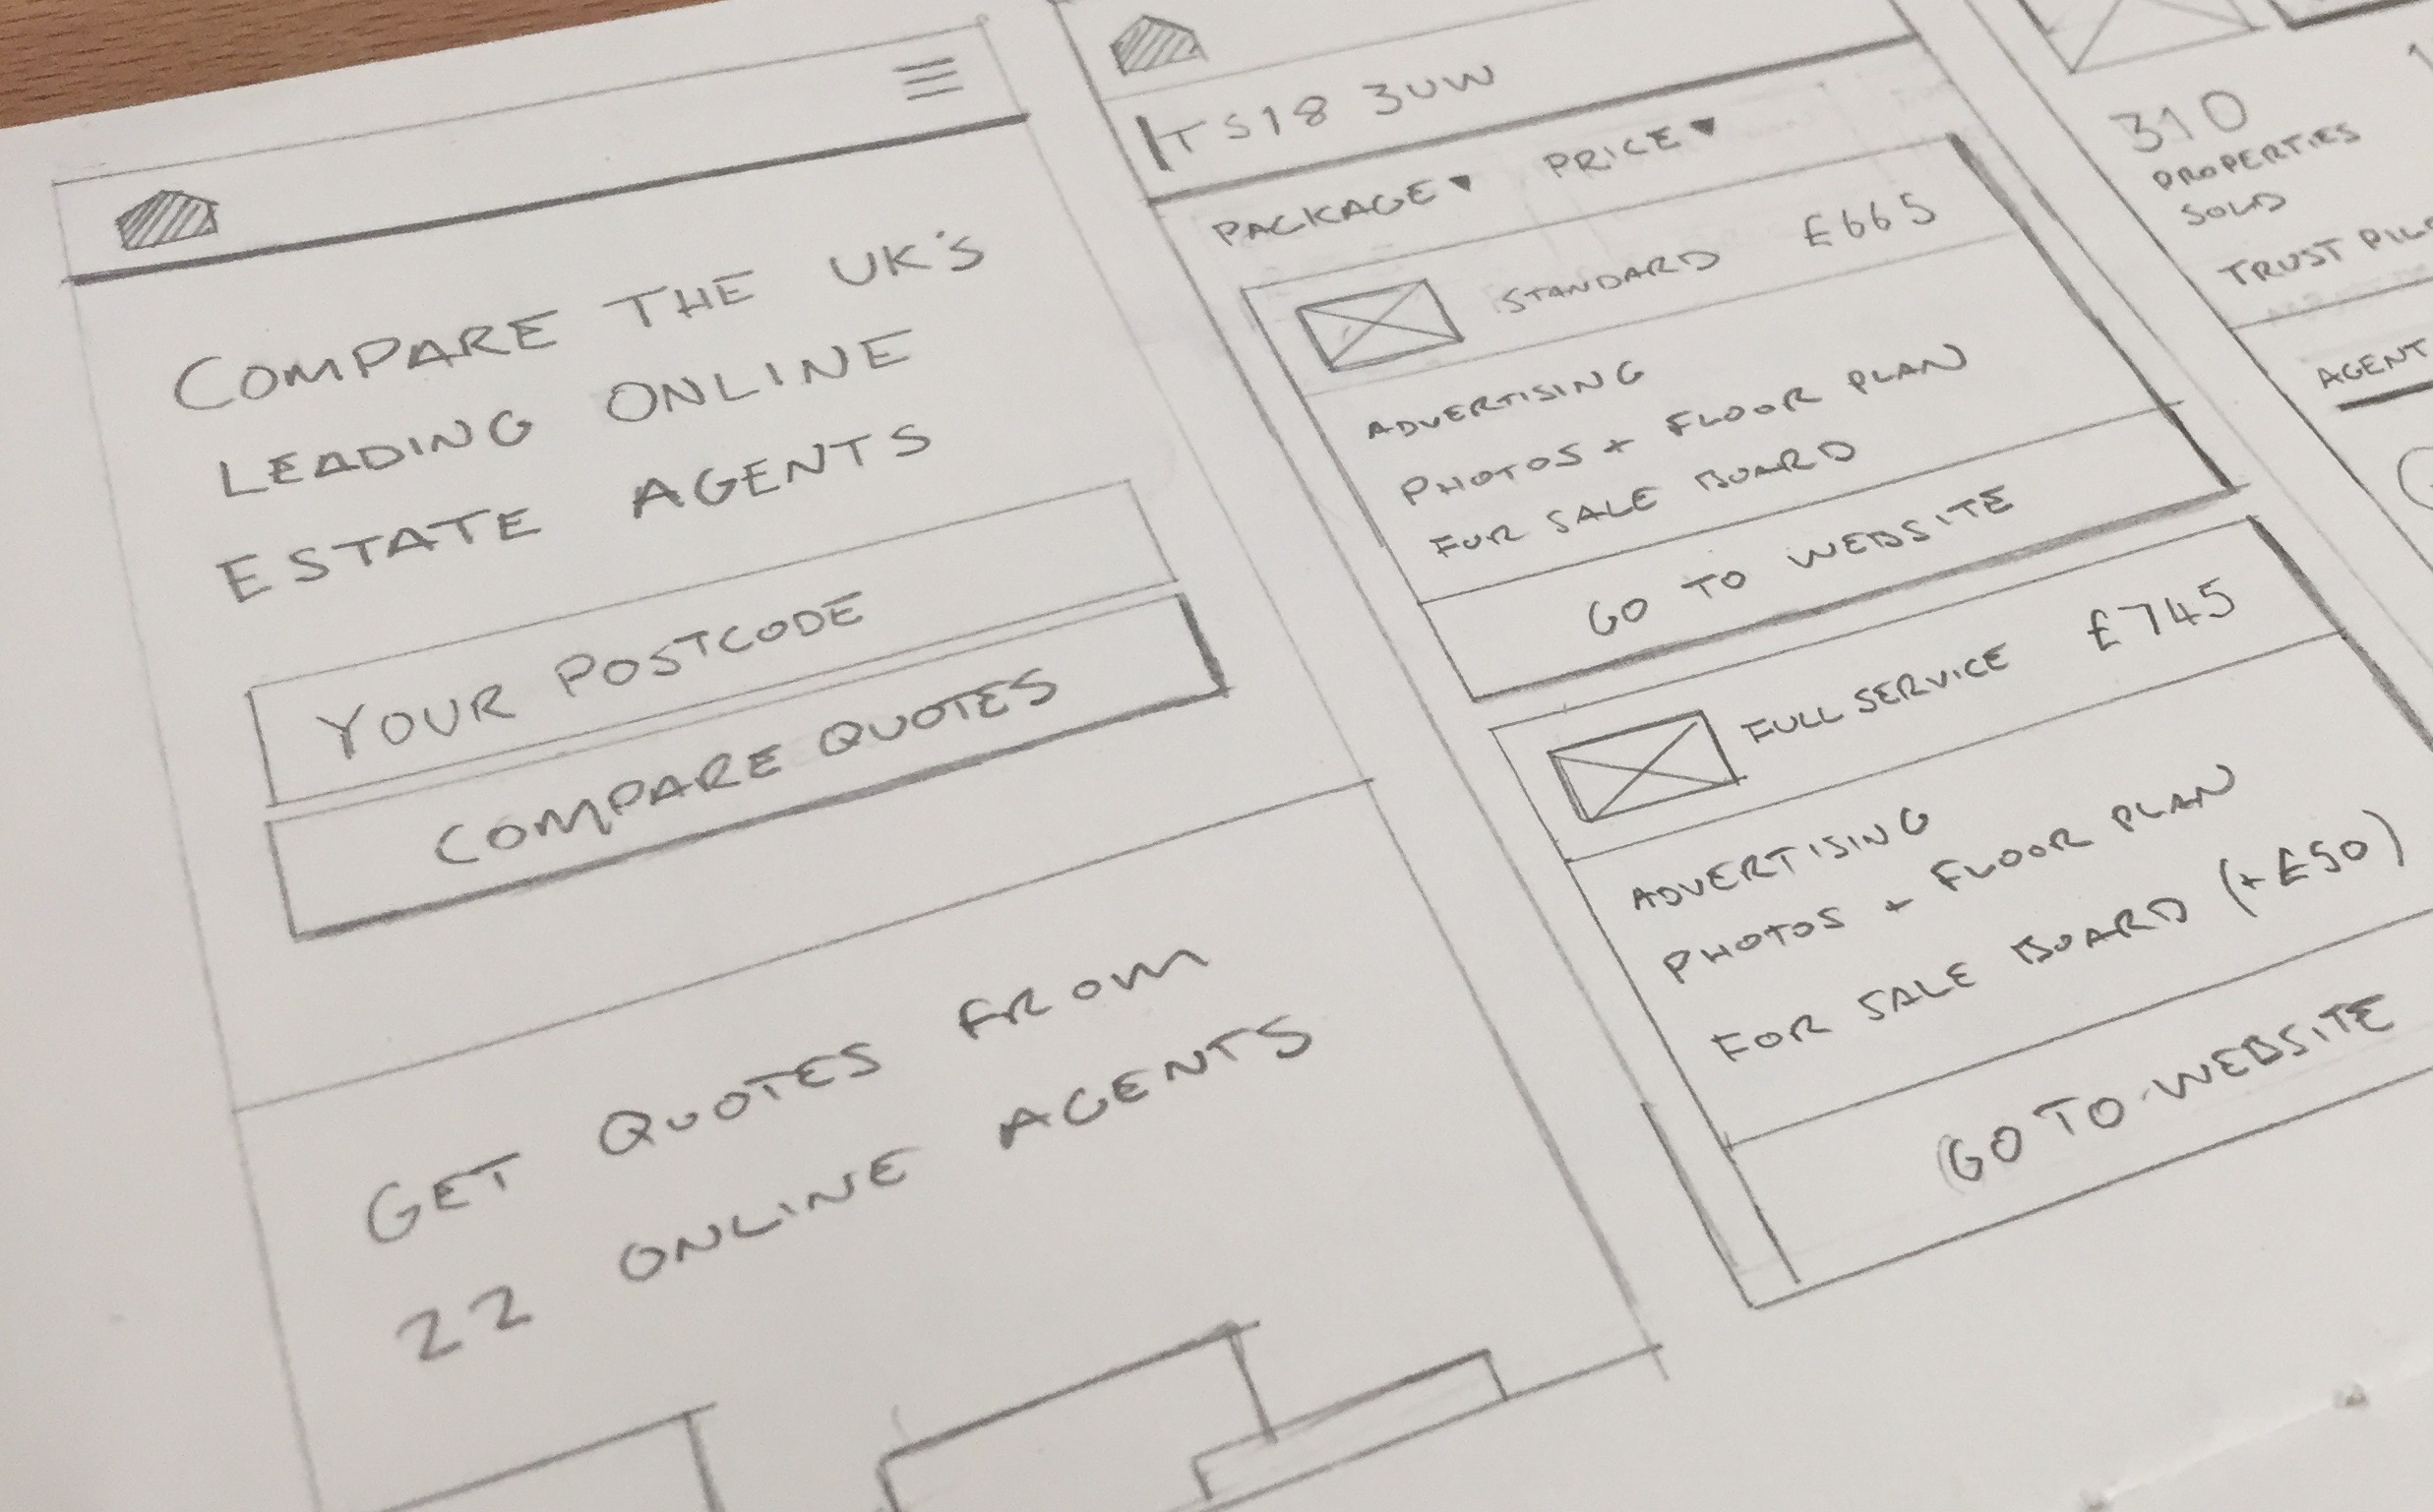 COMPARE THE UK'S
LEADING ONLINE
ESTATE AGENTS
YOUR POSTCODE
COMPARE QUOTES
GET QUOTES FROM
22 ONLINE AGENTS
TS18 3UW
PACKAGE▼ PRICE▼
STANDARD £665
ADVERTISING
PHOTOS + FLOOR PLAN
FOR SALE BOARD
GO TO WEBSITE
FULL SERVICE £745
ADVERTISING
PHOTOS + FLOOR PLAN
FOR SALE BOARD (+£50)
GO TO WEBSITE
310
PROPERTIES
SOLD
TRUST
AGENT